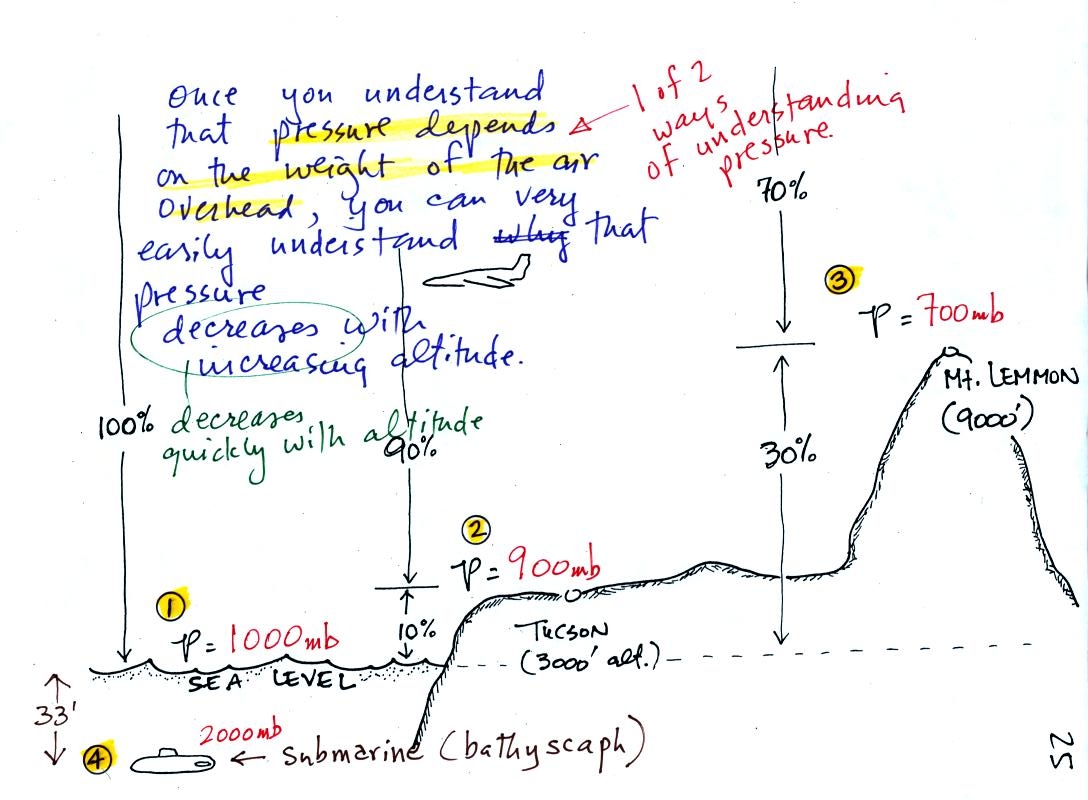 Once you understand
that pressure depends
on the weight of the air
overhead, you can very
easily understand why that
pressure
decreases with
increasing altitude.
decreases
quickly with altitude
1 of 2
ways
of understanding
pressure.
100%
90%
10%
70%
30%
1
P = 1000mb
SEA LEVEL
2
P = 900mb
TUCSON
(3000' alt.)
3
P = 700mb
Mt. LEMMON
(9000')
33'
4
2000mb
← Submarine (bathyscaph)
25